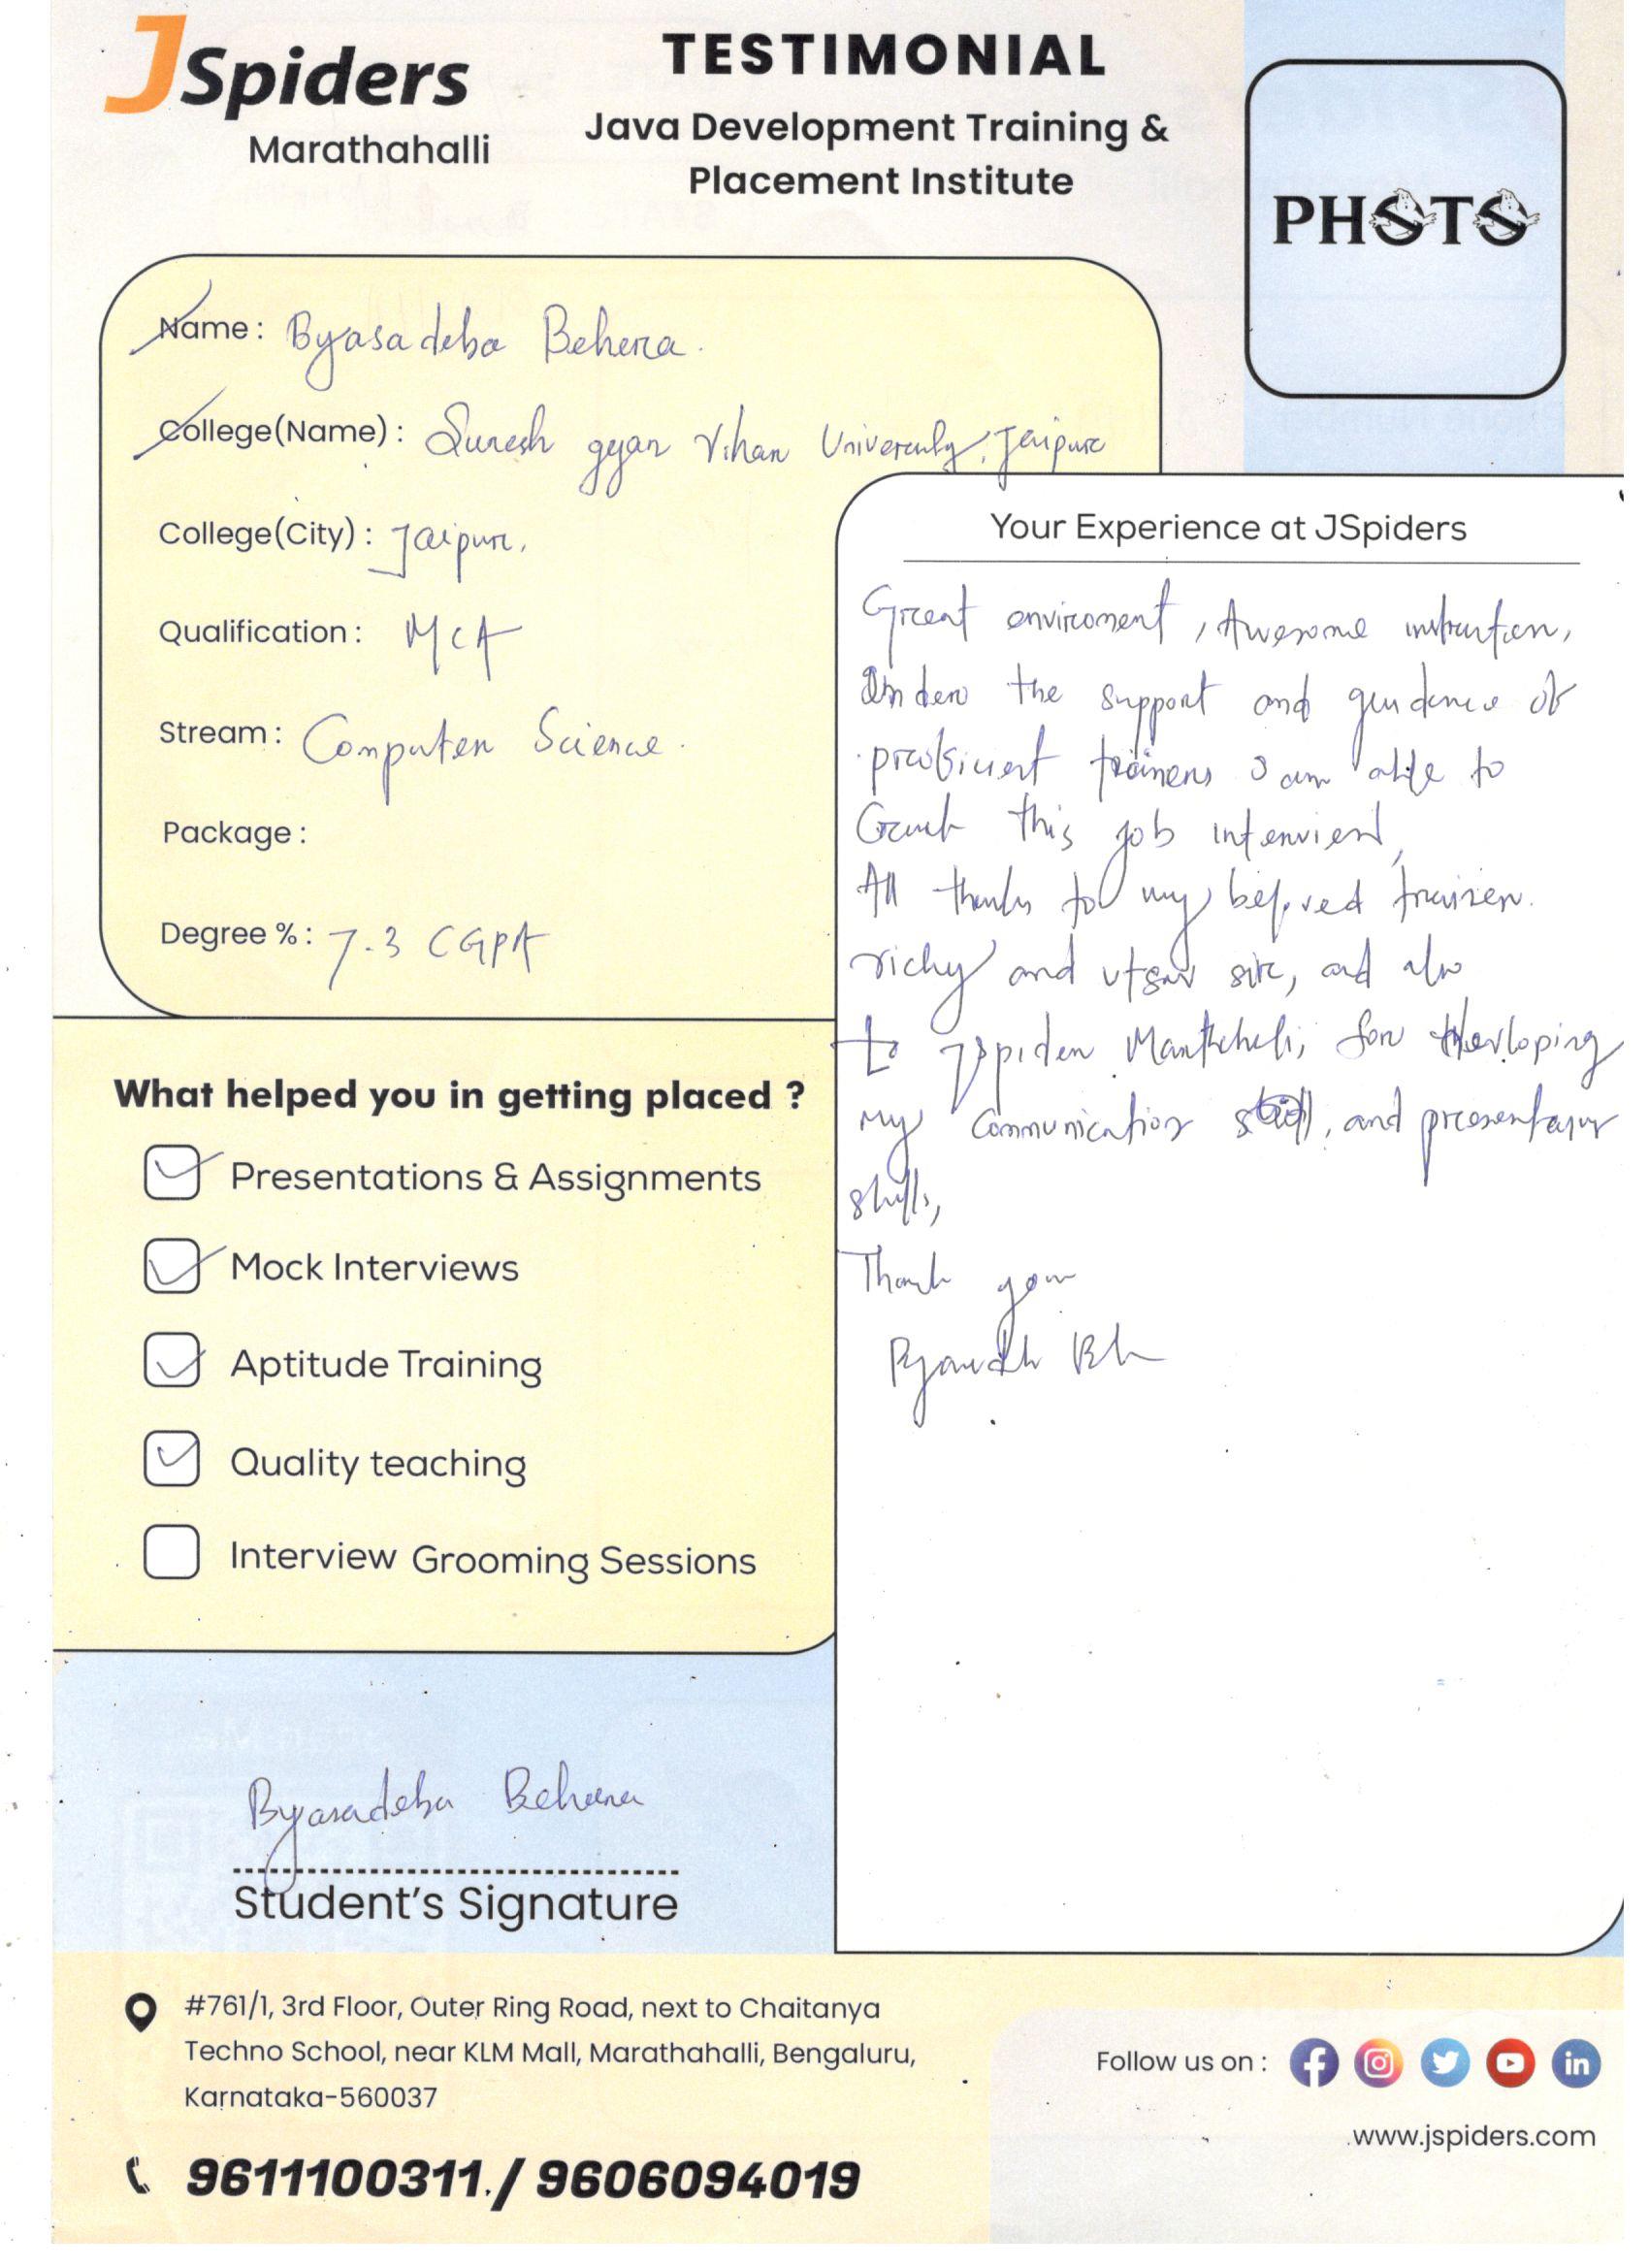 JSpiders
Marathahalli
TESTIMONIAL
Java Development Training &
Placement Institute
PHOTO
Name : Byasadeba Behera.
College(Name) : Suresh gyan Vihar University, Jaipur
College(City) : Jaipur,
Qualification : MCA
Stream : Computer Science.
Package :
Degree % : 7.3 CGPA
What helped you in getting placed ?
Presentations & Assignments
Mock Interviews
Aptitude Training
Quality teaching
Interview Grooming Sessions
Byasadeba Behera
Student's Signature
Your Experience at JSpiders
Great enviroment, Awesome
Under the support and guidence of
proficient trainers I am able to
this job interview,
All thanks to my beloved trainer.
richy and utsav sir, and also
to Jspider for
my Communication skill, and
skills,
Thank you
#761/1, 3rd Floor, Outer Ring Road, next to Chaitanya
Techno School, near KLM Mall, Marathahalli, Bengaluru,
Karnataka-560037
9611100311./ 9606094019
Follow us on :
www.jspiders.com